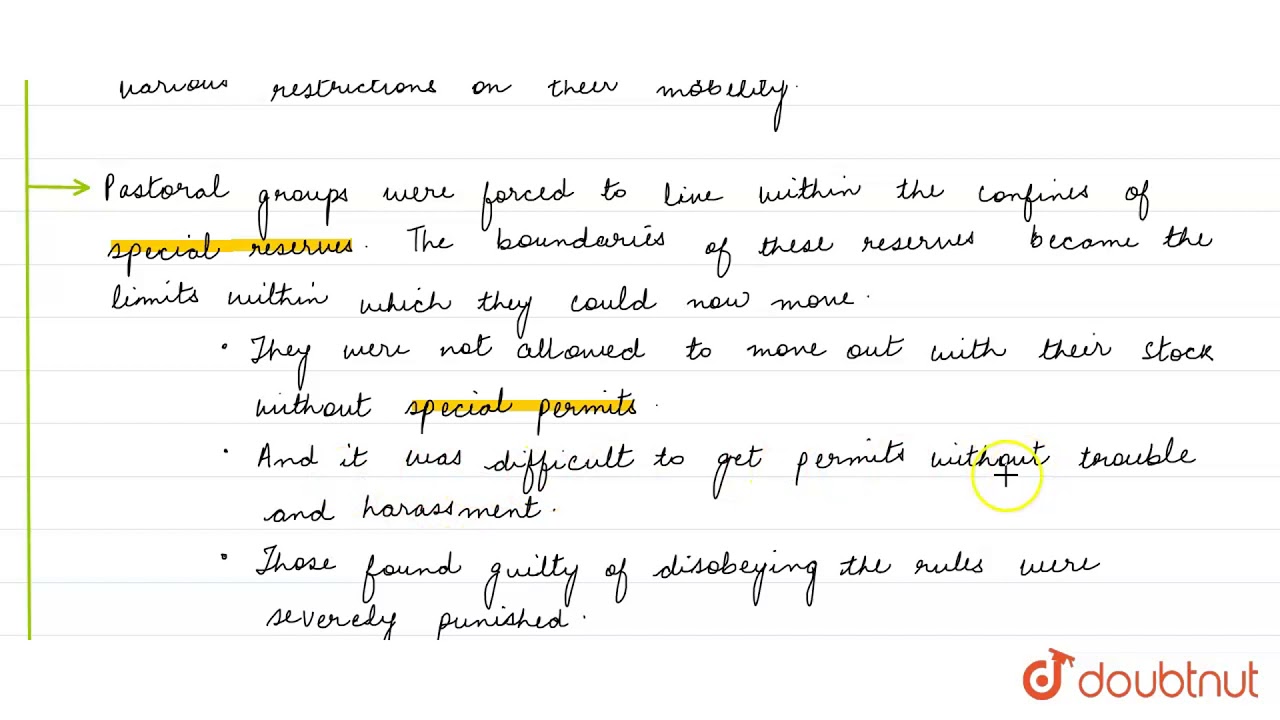 various restrictions on their mobility.
Pastoral groups were forced to live within the confines of
special reserves. The boundaries of these reserves became the
limits within which they could now move.
• They were not allowed to move out with their stock
without special permits.
• And it was difficult to get permits without trouble
and harassment.
• Those found guilty of disobeying the rules were
severely punished.
doubtnut